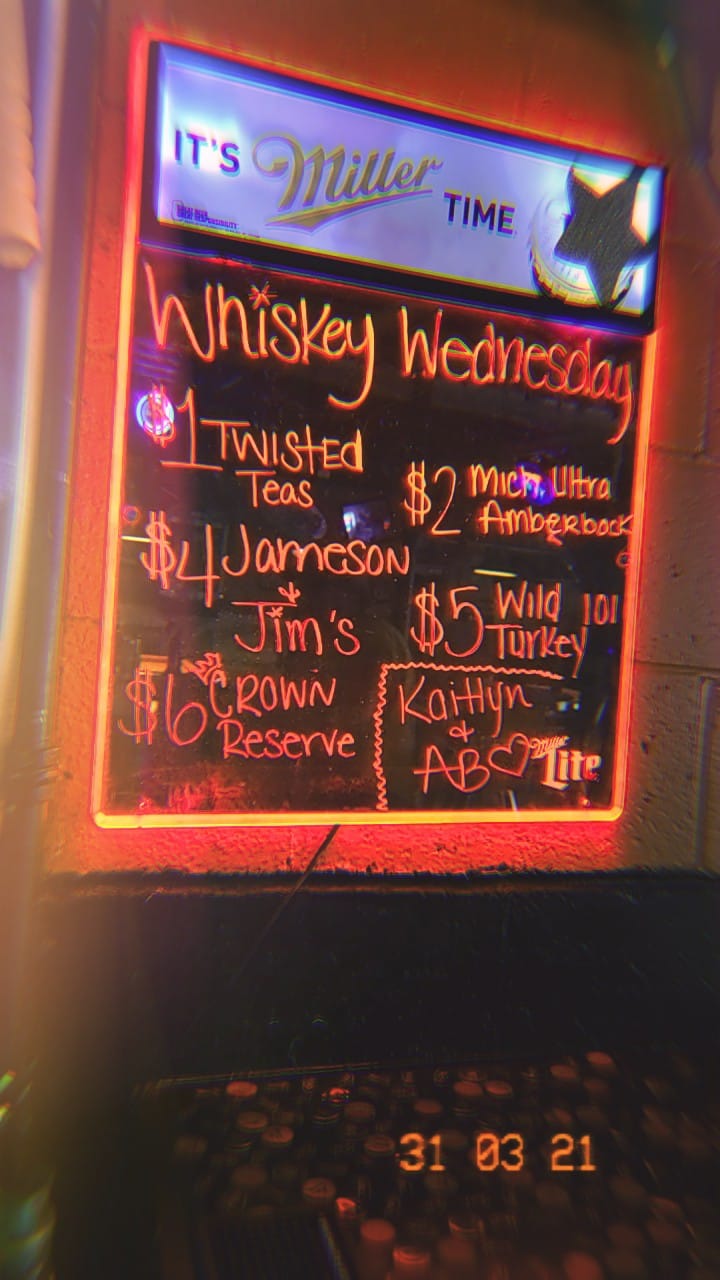 IT'S Miller TIME
GREAT BEER
GREAT RESPONSIBILITY
Whiskey Wednesday
$1 Twisted
Teas
$2 Mich Ultra
Amberbock
$4 Jameson
&
Jim's
$5 Wild 101
Turkey
$6 CROWN
Reserve
Kaitlyn
&
AB
Miller
Lite
31 03 21